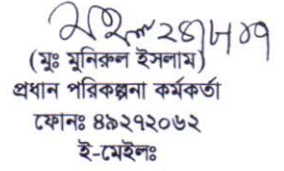 (মুঃ মুনিরুল ইসলাম)
প্রধান পরিকল্পনা কর্মকর্তা
ফোনঃ ৪৯২৭২০৬২
ই-মেইলঃ